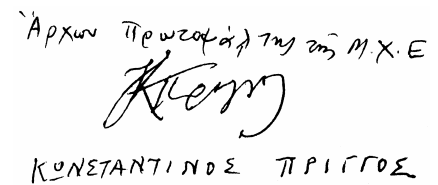 Ἄρχων Πρωτοψάλτης τῆς Μ.Χ.Ε
ΚΠριγγ
ΚΩΝΣΤΑΝΤΙΝΟΣ ΠΡΙΓΓΟΣ